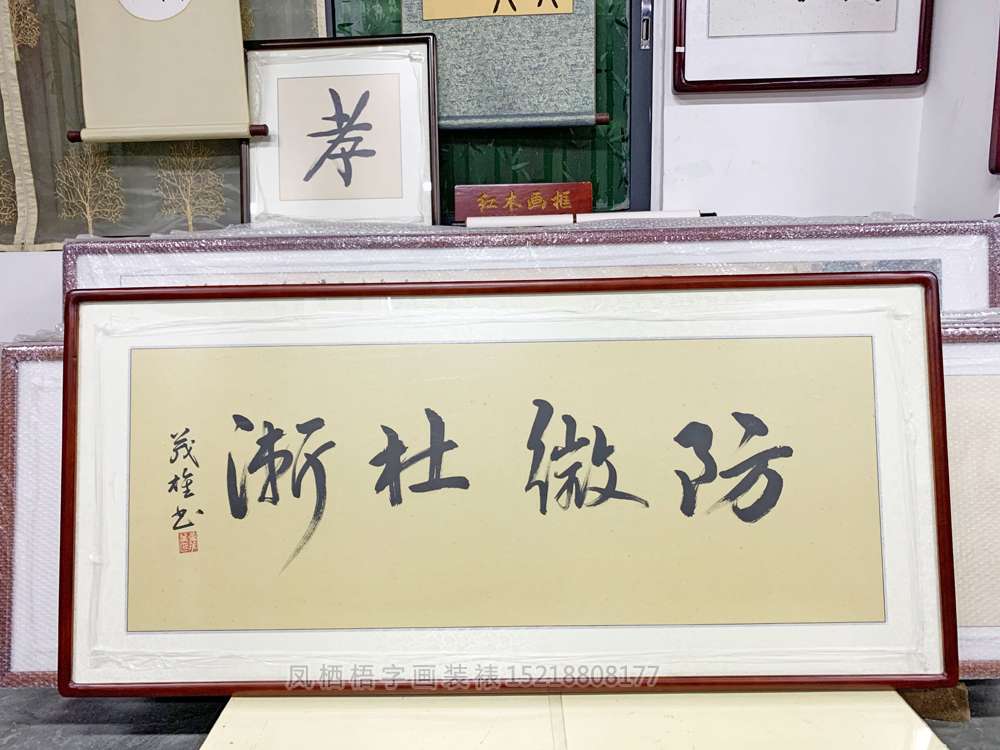 孝
红木画框
防微杜渐
茂雄书
凤栖梧字画装裱15218808177